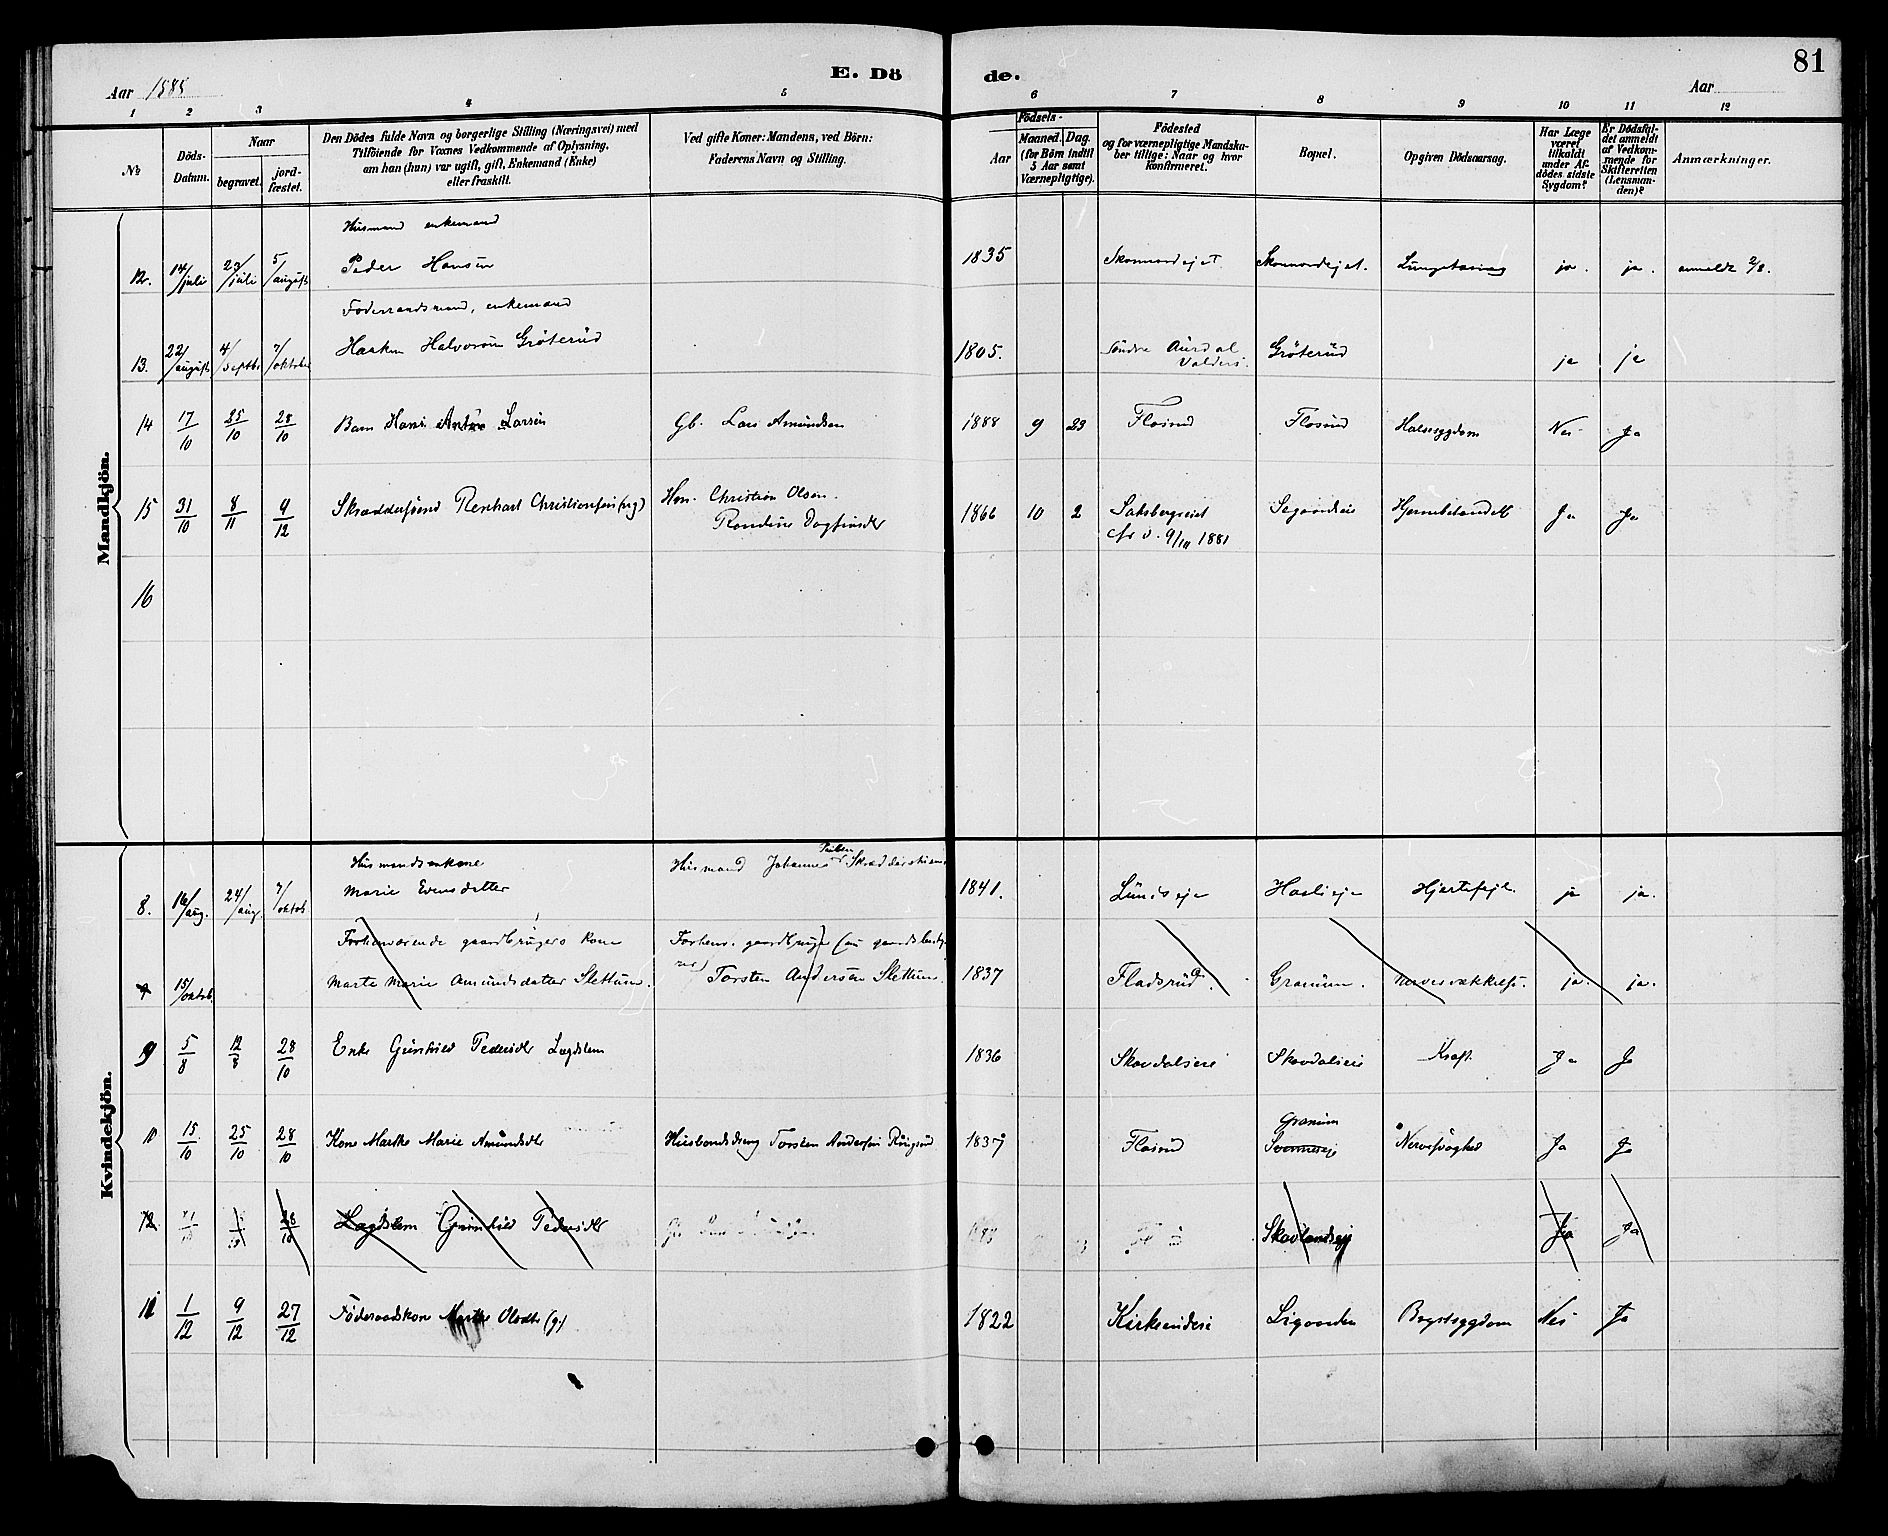 81
E. Dö de.
Aar 1885 Aar
1 2 3 4 5 6 7 8 9 10 11 12
№ Döds-Datum. Naar begravet. jordfæstet. Den Dödes fulde Navn og borgerlige Stilling (Næringsvei) med Tilföiende for Voxnes Vedkommende af Oplysning, om han (hun) var ugift, gift, Enkemand (Enke) eller fraskilt. Ved gifte Koner: Mandens, ved Börn: Faderens Navn og Stilling. Födsels- Aar Maaned. Dag. (for Börn indtil 5 Aar samt Værnepligtige). Födested og for værnepligtige Mandskaber tillige: Naar og hvor Konfirmeret. Bopæl. Opgiven Dödsaarsag. Har Læge været tilkaldt under Afdödes sidste Sygdom? Er Dödsfaldet anmeldt af Vedkommende for Skifteretten (Lensmanden)? Anmærkninger.
Mandkjön.
Husmand enkemand
12. 14/juli 23/juli 5/august Peder Hansen 1835 ja. ja. anmeldt 2/8.
Föderaadsmand, enkemand
13. 22/august 4/septbr 7/oktober Haaken Halvorsen Gröterud 1805. Söndre Aurdal Valders. Gröterud ja ja
14 17/10 25/10 28/10 Barn Hans Anton Larsen Gb. Lars Amundsen 1888 9 23 Flosrud Flosrud Halssygdom Nei Ja
15 31/10 8/11 9/12 Skræddersvend Renhart Christiansen (ug) Hm. Christian Olsen. 1866 10 2 Ja Ja
9/10 1881
16
Kvindekjön.
Husmandsenkone
8. 16/aug. 24/aug. 7/oktob Marie Evensdatter Husmand Johannes Paulsen 1841. Lundseje Haslieje Hjertefejl. ja ja.
Forhenværende gaardbrugers kone Forhenv. gaardbruger
15/oktob. Marte Marie Amundsdatter Slettum. Torsten Andersen Slettum. 1837 Fladsrud. Granum. Nervesvækkelse. ja. ja.
9 5/8 12/8 28/10 Enke Gunhild Pedersdtr Lægdslem 1836 Skovdalseie Skovdalseie Kræft. Ja Ja
10 15/10 25/10 28/10 Kone Marthe Marie Amundsdtr Torsten Andersen Ringsrud 1837 Flosrud Granum Nervesvaghed Ja Ja
12. 28/10 Lægdslem Gunhild Pedersdtr Ja Ja
11 1/12 9/12 27/12 Föderaadskone Marthe Olsdtr (g) 1822 Brystsygdom Nei Ja